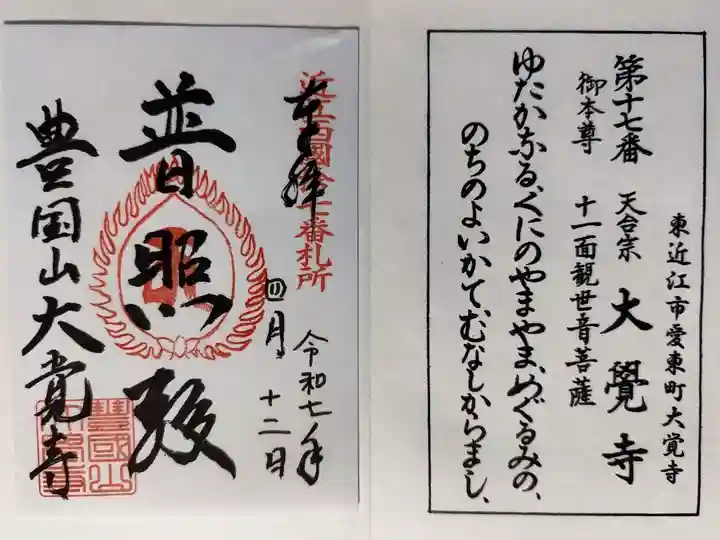 東近江市愛東町大覚寺
第十七番 天台宗 大覺寺
御本尊 十一面観世音菩薩
ゆたかなるくにのやまやまめぐるみの、
のちのよいかでむなしからまし、
奉拝
近江西國第十七番札所
令和七年
月
十二日
普照殿
豊国山大覚寺